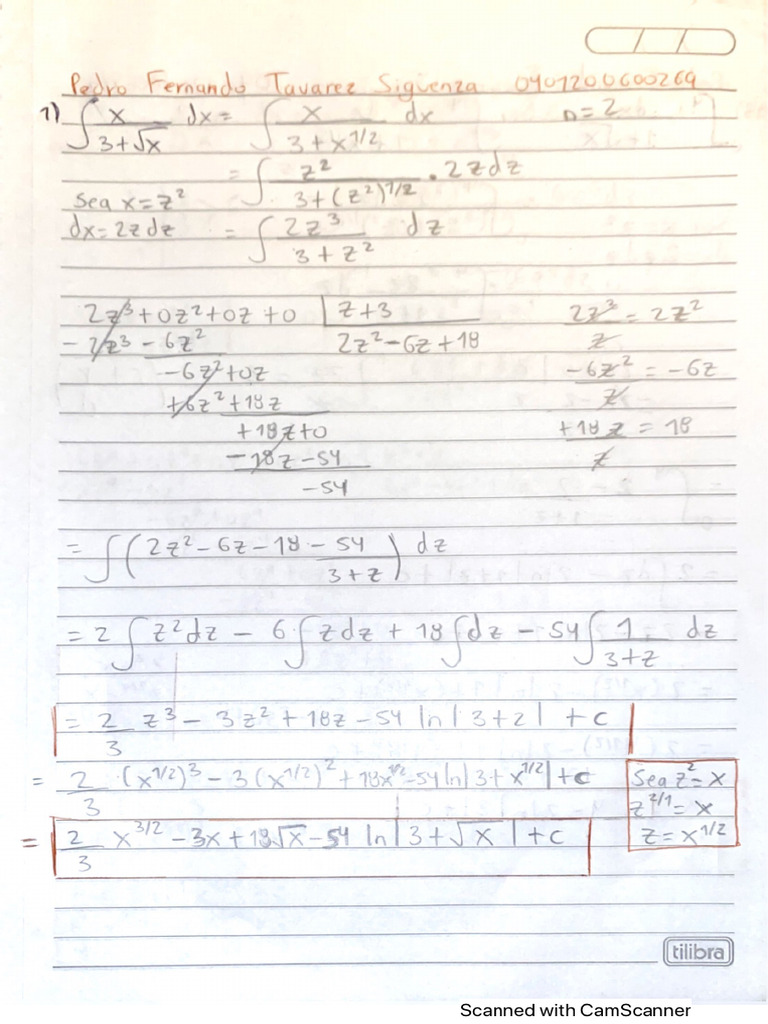 Pedro Fernando Tavarez Sigüenza 0401200600269
1) ∫ x/(3+√x) dx = ∫ x/(3+x^1/2) dx n=2
= ∫ z²/(3+(z²)^1/2) · 2zdz
Sea x=z²
dx=2zdz = ∫ 2z³/(3+z²) dz
2z³+0z²+0z+0 | z+3 2z³/z = 2z²
-2z³-6z² 2z²-6z+18
-6z²+0z -6z²/z = -6z
+6z²+18z
+18z+0 +18z/z = 18
-18z-54
-54
= ∫ (2z²-6z-18-54/(3+z)) dz
= 2 ∫ z²dz - 6 ∫ zdz + 18 ∫ dz - 54 ∫ 1/(3+z) dz
= 2/3 z³ - 3z² + 18z - 54 ln|3+z| + c
= 2/3 (x^1/2)³ - 3(x^1/2)² + 18x^1/2 - 54 ln|3+x^1/2| + c
Sea z²=x
z^2/1=x
z=x^1/2
= 2/3 x^3/2 - 3x + 18√x - 54 ln|3+√x| + c
tilibra
Scanned with CamScanner